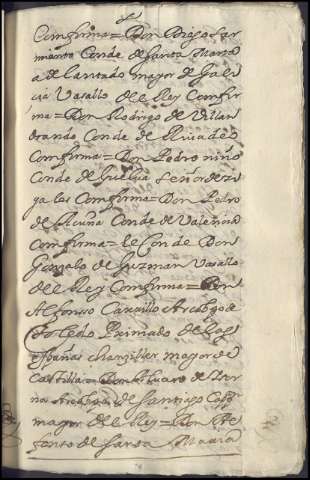 Comfirma = Don Diego Sar
miento Conde de Santa Marta
adelantado mayor de Gali
cia Vasallo del Rey Comfir
ma = Don Rodrigo de Villan
drando Conde de Rivadeo
Comfirma = Don Pedro niño
Conde de Señor de zi
gales Comfirma = Don Pedro
de Acuña Conde de Valencia
Comfirma = el Conde Don
Gonzalo de Guzman Vasallo
del Rey Comfirma = Don
Alfonso Carrillo Arzobpo de
Toledo Primado de las
españas chanziller mayor de
Castilla = Don Alvaro de
Arzobpo de Santiago Cap
mayor del Rey = Don Al
fonso de Santa Maria